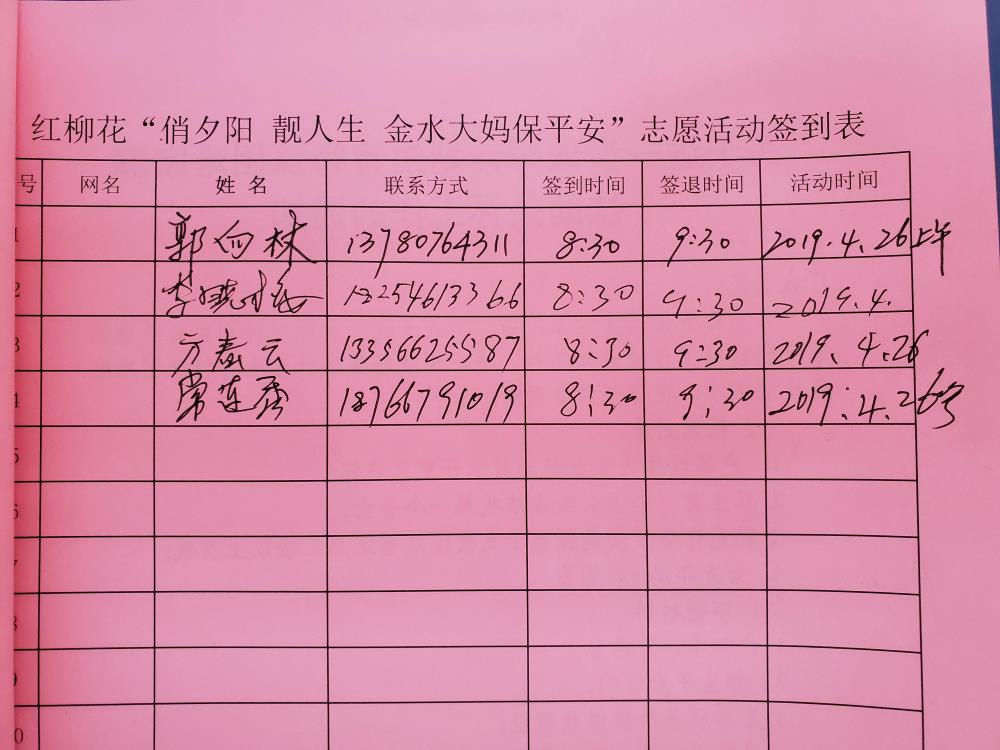 红柳花“俏夕阳 靓人生 金水大妈保平安”志愿活动签到表
号 网名 姓 名 联系方式 签到时间 签退时间 活动时间
1 郭向林 13780764311 8:30 9:30 2019.4.26上午
2 李晓 18254613366 8:30 9:30 2019.4.
3 方春云 13356625587 8:30 9:30 2019.4.26
4 常连秀 18766791019 8:30 9:30 2019.4.26号
5
6
7
8
9
0